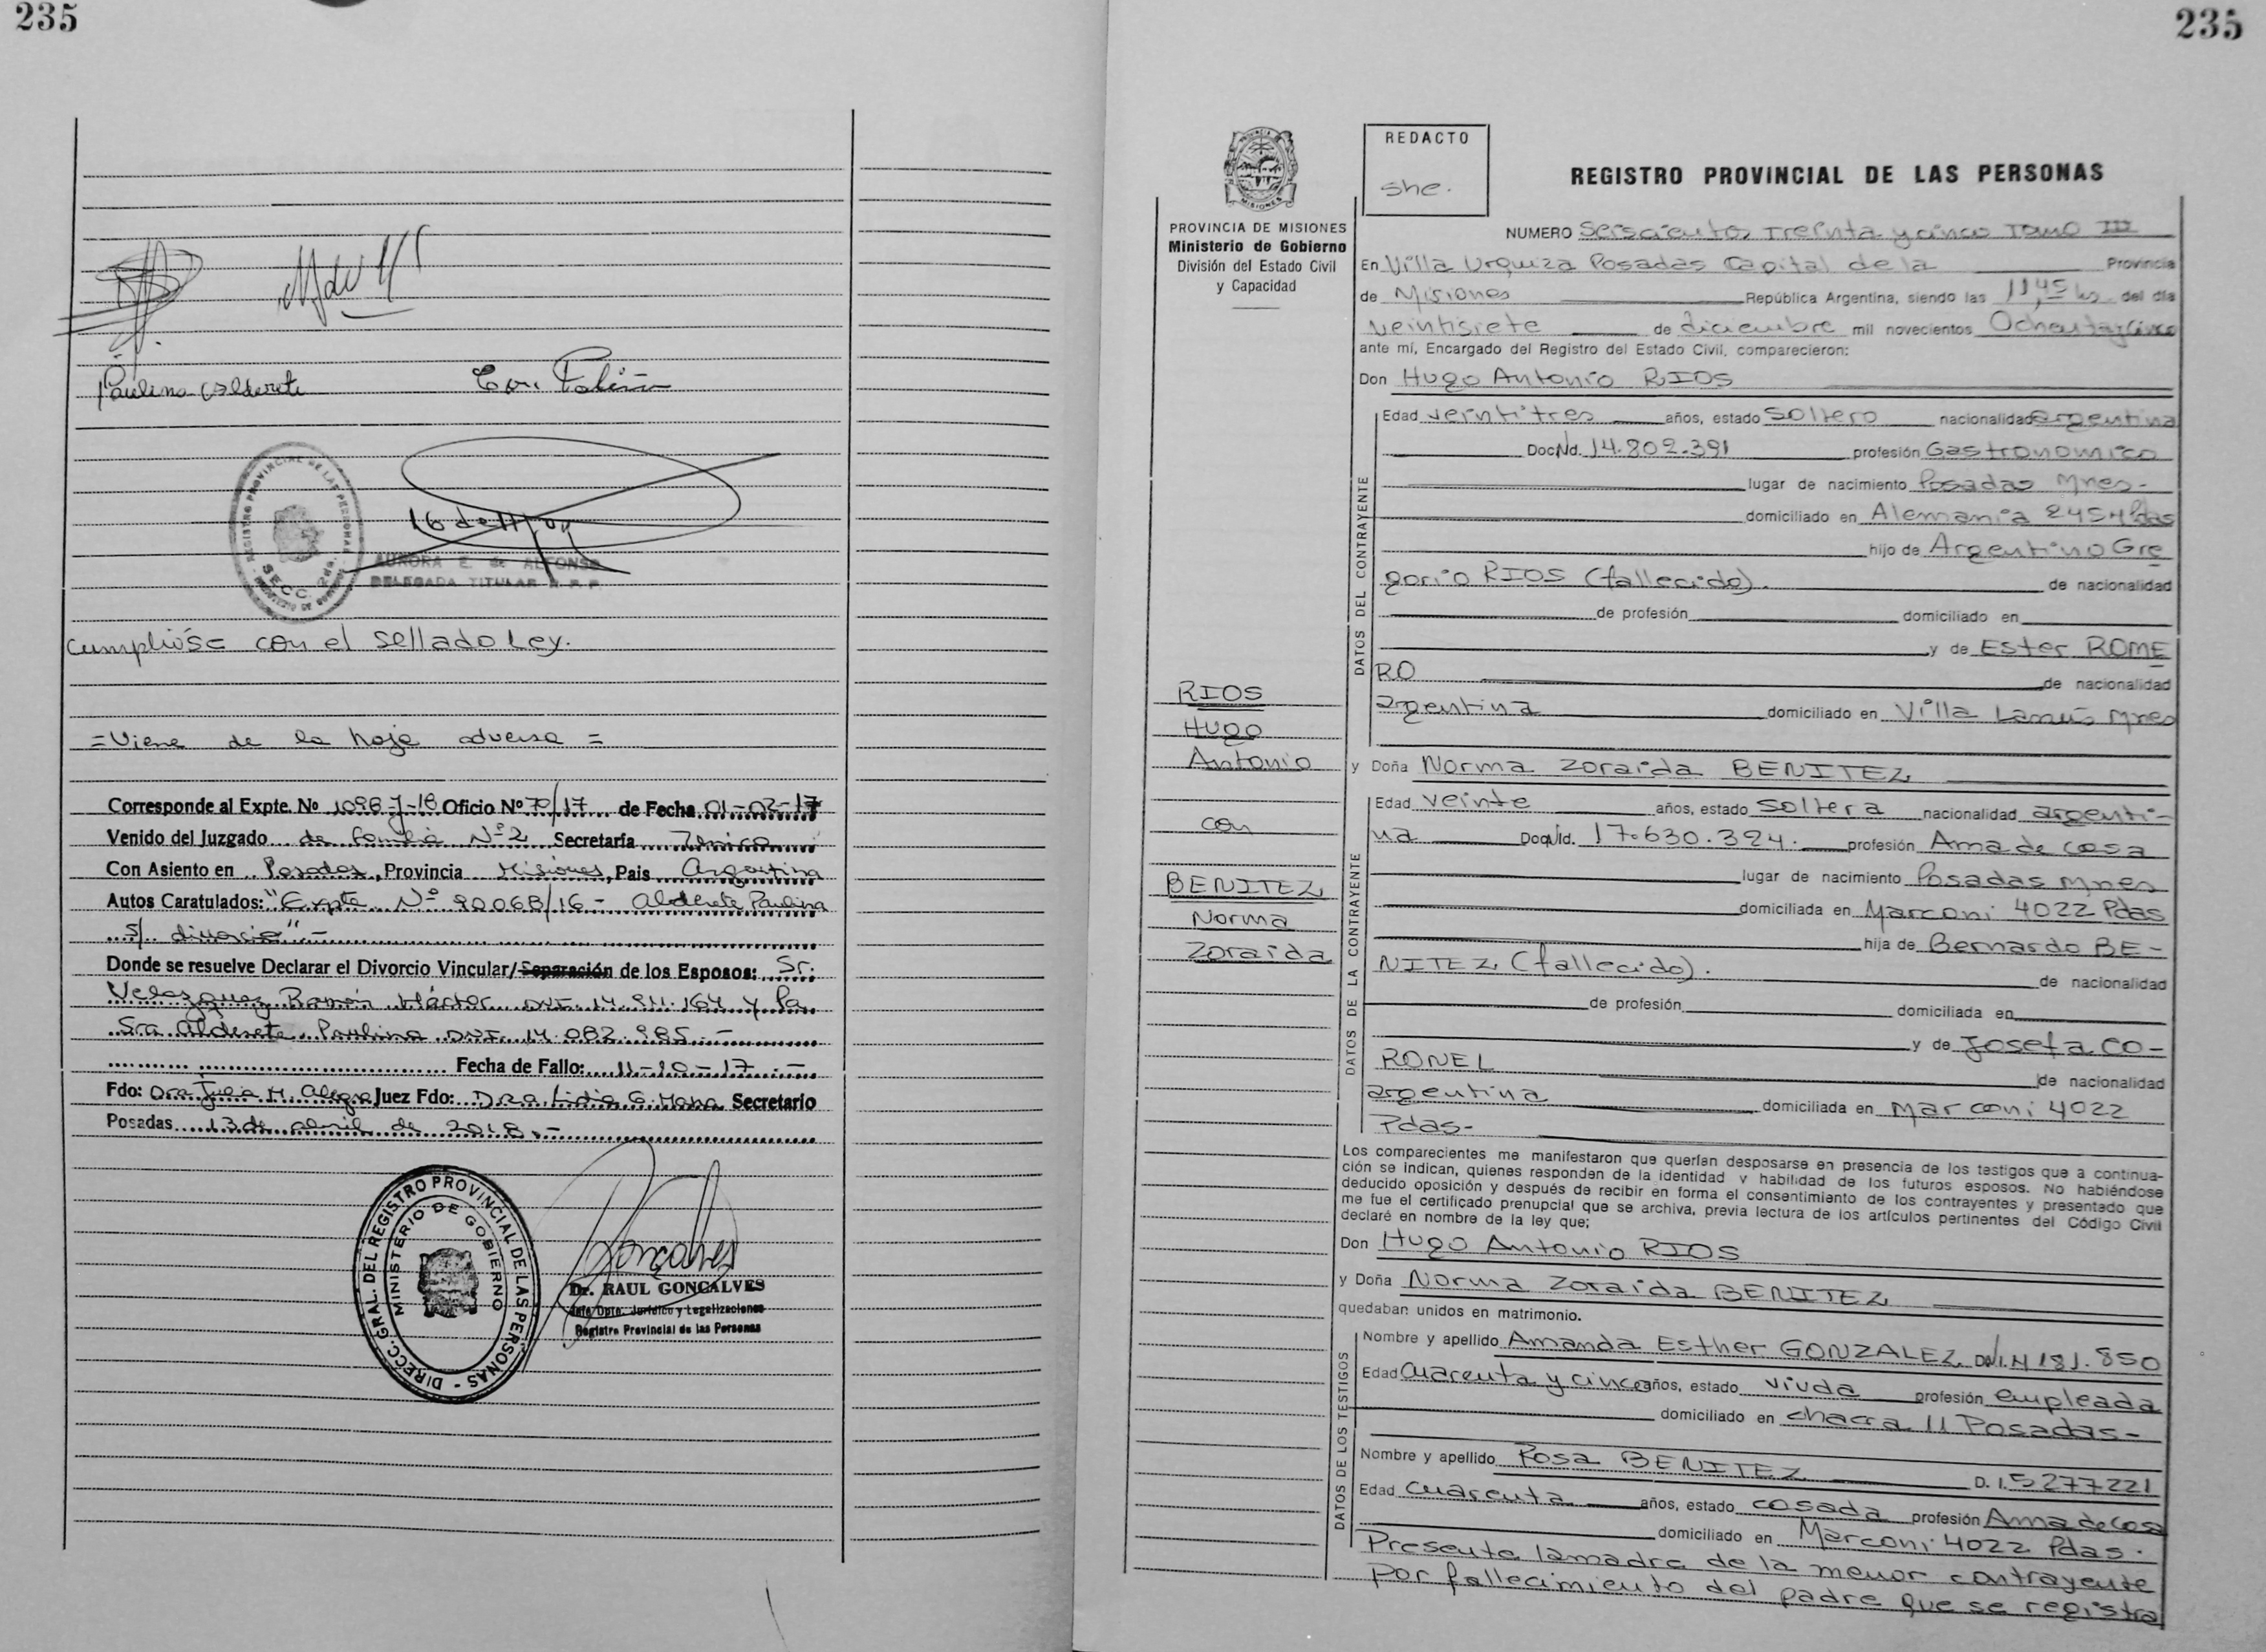 235
Paulina Alderete
REGISTRO PROVINCIAL DE LAS PERSONAS
SECC. 2da.
16 de
AURORA E. de ALFONSO
DELEGADA TITULAR R. P. P.
Cumplióse con el sellado Ley.
=Viene de la hoja adversa =
Corresponde al Expte. Nº 1096-J-18 Oficio Nº 70/17 de Fecha 01-02-17
Venido del Juzgado de Familia Nº 2 Secretaría Única
Con Asiento en Posadas, Provincia Misiones, Pais Argentina
Autos Caratulados: "Expte Nº 90068/16 - Alderete Paulina
s/ divorcio".-
Donde se resuelve Declarar el Divorcio Vincular/Separación de los Esposos: Sr.
Velazquez Ramón Héctor DNI. 14.911.164 y la
Sra Alderete Paulina DNI. 14.082.985.-
Fecha de Fallo: 11-10-17.-
Fdo: Dra Julia M. Alegre Juez Fdo: Dra. Lidia G. Secretario
Posadas 13 de abril de 2018.-
DIRECC. GRAL. DEL REGISTRO PROVINCIAL DE LAS PERSONAS -
MINISTERIO DE GOBIERNO
Goncalves
Dr. RAUL GONCALVES
Jefe Dpto. Jurídico y Legalizaciones
Registro Provincial de las Personas
235
PROVINCIA DE MISIONES
Ministerio de Gobierno
División del Estado Civil
y Capacidad
RIOS
HUGO
Antonio
con
BENITEZ
Norma
Zoraida
REDACTO
she.
REGISTRO PROVINCIAL DE LAS PERSONAS
NUMERO Seiscientos Treinta y cinco Tomo III
En Villa Urquiza Posadas Capital de la Provincia
de Misiones República Argentina, siendo las 11,45 hs. del día
veintisiete de diciembre mil novecientos Ochenta y cinco
ante mí, Encargado del Registro del Estado Civil, comparecieron:
Don Hugo Antonio RIOS
DATOS DEL CONTRAYENTE
Edad veintitres años, estado soltero nacionalidad argentina
Doc. Nd. 14.802.391 profesión Gastronomico
lugar de nacimiento Posadas Mnes-
domiciliado en Alemania 2454 Pdas
hijo de Argentino Gre
gorio RIOS (fallecido). de nacionalidad
de profesión domiciliado en
y de Ester ROME
RO de nacionalidad
argentina domiciliado en Villa Lanús Mnes
y Doña Norma Zoraida BENITEZ
DATOS DE LA CONTRAYENTE
Edad veinte años, estado soltera nacionalidad argenti-
na Doc. Nd. 17.630.324. profesión Ama de casa
lugar de nacimiento Posadas Mnes
domiciliada en Marconi 4022 Pdas
hija de Bernardo BE-
NITEZ (fallecido). de nacionalidad
de profesión domiciliada en
y de Josefa CO-
RONEL de nacionalidad
argentina domiciliada en Marconi 4022
Pdas-
Los comparecientes me manifestaron que querían desposarse en presencia de los testigos que a continua-
ción se indican, quienes responden de la identidad y habilidad de los futuros esposos. No habiéndose
deducido oposición y después de recibir en forma el consentimiento de los contrayentes y presentado que
me fue el certificado prenupcial que se archiva, previa lectura de los artículos pertinentes del Código Civil
declaré en nombre de la ley que;
Don Hugo Antonio RIOS
y Doña Norma Zoraida BENITEZ
quedaban unidos en matrimonio.
DATOS DE LOS TESTIGOS
Nombre y apellido Amanda Esther GONZALEZ DNI. 4 181.850
Edad Cuarenta y cinco años, estado viuda profesión empleada
domiciliado en chacra 11 Posadas-
Nombre y apellido Rosa BENITEZ D. I. 5277221
Edad Cuarenta años, estado casada profesión Ama de casa
domiciliado en Marconi 4022 Pdas.
Presente la madre de la menor contrayente
Por fallecimiento del padre que se registra